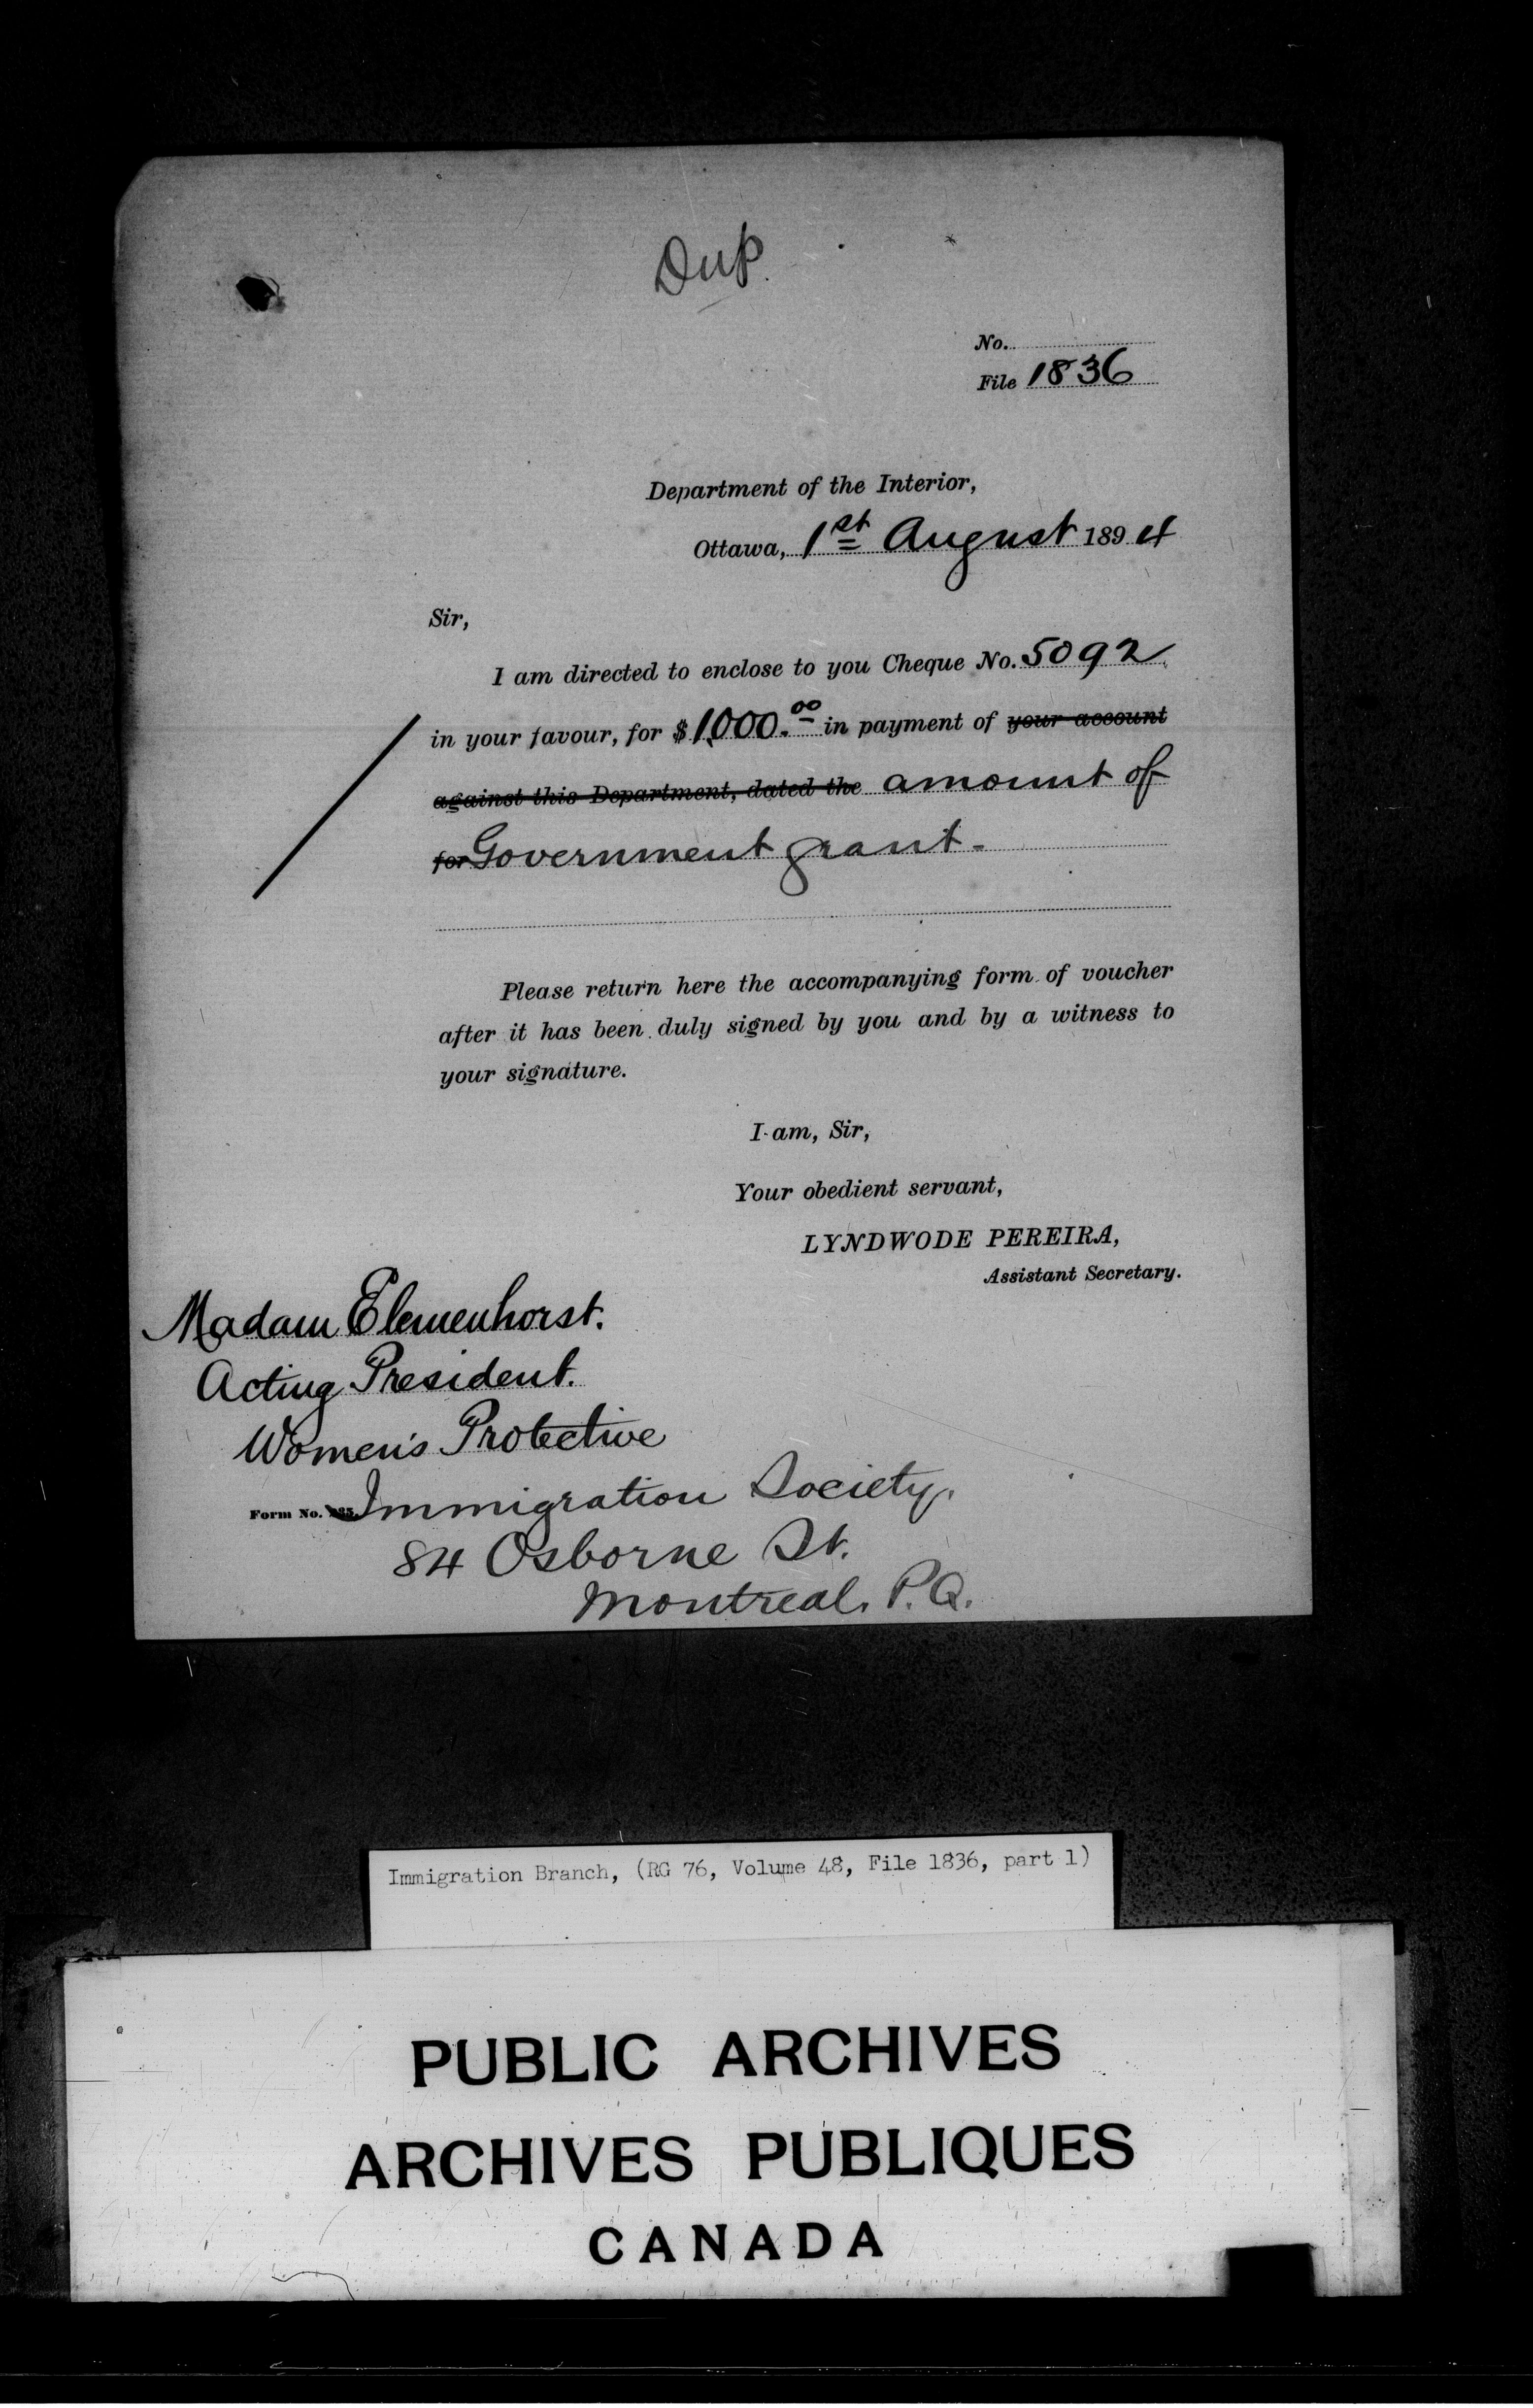 Dup.
No.
File 1836
Department of the Interior,
Ottawa, 1st August 1894
Sir,
I am directed to enclose to you Cheque No. 5092
in your favour, for $1,000.00 in payment of your account
against this Department, dated the amount of
for Government grant.
Please return here the accompanying form of voucher
after it has been duly signed by you and by a witness to
your signature.
I am, Sir,
Your obedient servant,
LYNDWODE PEREIRA,
Assistant Secretary.
Madam Elemenhorst.
Acting President.
Women's Protective
Form No. Immigration Society.
84 Osborne St.
Montreal. P.Q.
Immigration Branch, (RG 76, Volume 48, File 1836, part 1)
PUBLIC ARCHIVES
ARCHIVES PUBLIQUES
CANADA